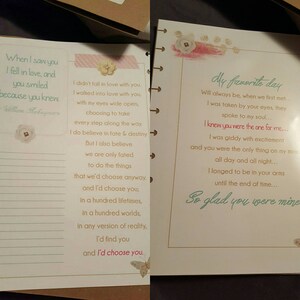 When I saw you
I fell in love, and
you smiled
because you knew.
I didn't fall in love with you.
I walked into love with you,
with my eyes wide open,
choosing to take
every step along the way.
I do believe in fate & destiny.
But I also believe
we are only fated
to do the things
that we'd choose anyway.
and I'd choose you,
in a hundred lifetimes,
in a hundred worlds,
in any version of reality,
I'd find you
and I'd choose you.
My favorite day
Will always be, when we first met...
I was taken by your eyes, they
spoke to my soul...
I knew you were the one for me...
I was giddy with excitement
and you were the only thing on my mind
all day and all night...
I longed to be in your arms
until the end of time...
So glad you were mine